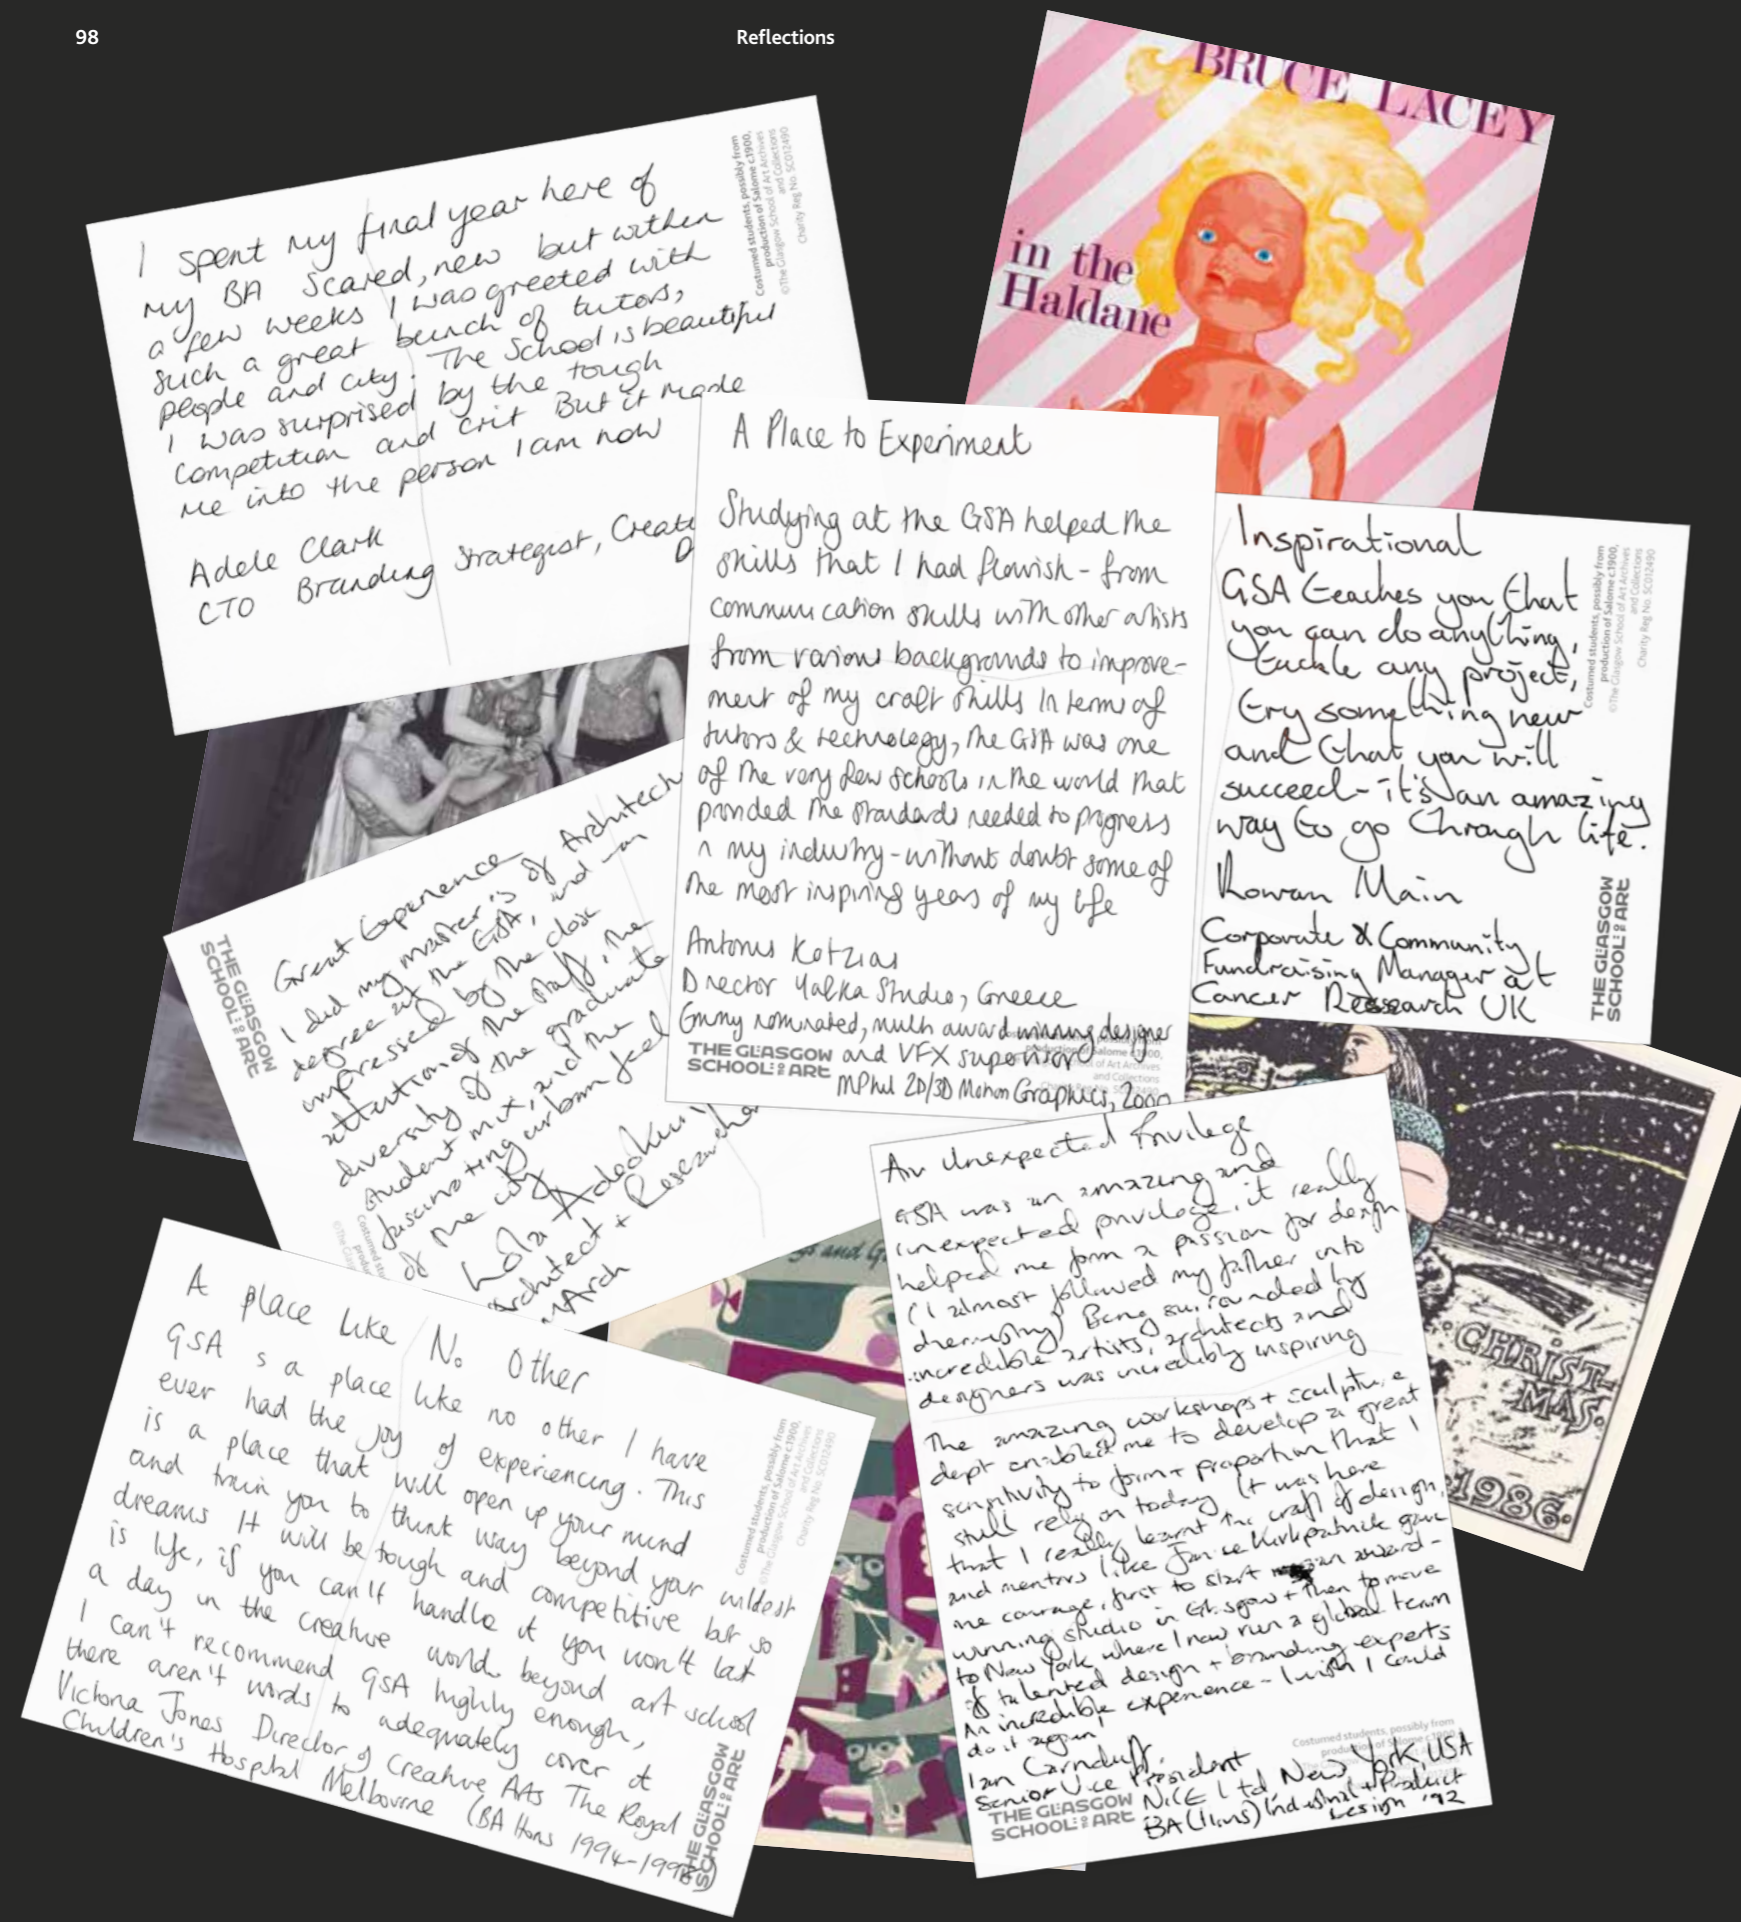 98
Reflections
BRUCE LACEY
in the
Haldane
I spent my final year here of
my BA Scared, new but within
a few weeks I was greeted with
such a great bunch of tutors,
people and city. The School is beautiful
I was surprised by the tough
Competition and crit But it made
me into the person I am now
Adele Clark
CTO Branding Strategist, Creat
D
Costumed students, possibly from
production of Salome c.1900,
©The Glasgow School of Art Archives
and Collections
Charity Reg No. SC012490
A Place to Experiment
Studying at the GSA helped the
skills that I had flourish - from
communication skills with other artists
from various backgrounds to improve-
ment of my craft skills In terms of
tutors & technology, the GSA was one
of the very few schools in the world that
provided the standards needed to progress
n my industry - without doubt some of
the most inspiring years of my life
Antonis Kotzias
Director Yafka Studio, Greece
Emmy nominated, multi award winning designer
and VFX supervisor
MPhil 2D/3D Motion Graphics, 2000
THE GLASGOW
SCHOOL OF ART
Inspirational
GSA teaches you that
you can do anything,
tackle any project,
try something new
and that you will
succeed - it's an amazing
way to go through life.
Rowan Main
Corporate & Community
Fundraising Manager at
Cancer Research UK
Costumed students, possibly from
production of Salome c.1900,
©The Glasgow School of Art Archives
and Collections
Charity Reg No. SC012490
THE GLASGOW
SCHOOL OF ART
Great Experience
I did my master's of Architech
degree at the GSA, and was
impressed by the close
attention of the staff, the
diversity of the graduate
student mix, and the
fascinating urban feel
of the city
Lola Adeokun
Architect + Researcher
MArch
THE GLASGOW
SCHOOL OF ART
A place like No Other
GSA s a place like no other I have
ever had the joy of experiencing. This
is a place that will open up your mind
and train you to think way beyond your wildest
dreams It will be tough and competitive but so
is life, if you can't handle it you won't last
a day in the creative world beyond art school
I can't recommend GSA highly enough,
there aren't words to adequately cover it
Victoria Jones Director of Creative Arts The Royal
Children's Hospital Melbourne (BA Hons 1994-1998)
Costumed students, possibly from
production of Salome c.1900,
©The Glasgow School of Art Archives
and Collections
Charity Reg No. SC012490
THE GLASGOW
SCHOOL OF ART
An Unexpected Privilege
GSA was an amazing and
unexpected privilege, it really
helped me form a passion for design
(I almost followed my father into
chemistry) Being surrounded by
incredible artists, architects and
designers was incredibly inspiring
The amazing workshops + sculpture
dept enabled me to develop a great
sensitivity to form + proportion that I
still rely on today It was here
that I really learnt the craft of design,
and mentors like Janice Kirkpatrick gave
me courage, first to start an award-
winning studio in Glasgow + then to move
to New York where I now run a global team
of talented design + branding experts
An incredible experience - I wish I could
do it again!
Ian Carnduff,
Senior Vice President
NICE Ltd New York, USA
BA (Hons) Industrial + Product
Design '92
Costumed students, possibly from
production of Salome c.1900,
THE GLASGOW
SCHOOL OF ART
CHRIST-
MAS.
1986.